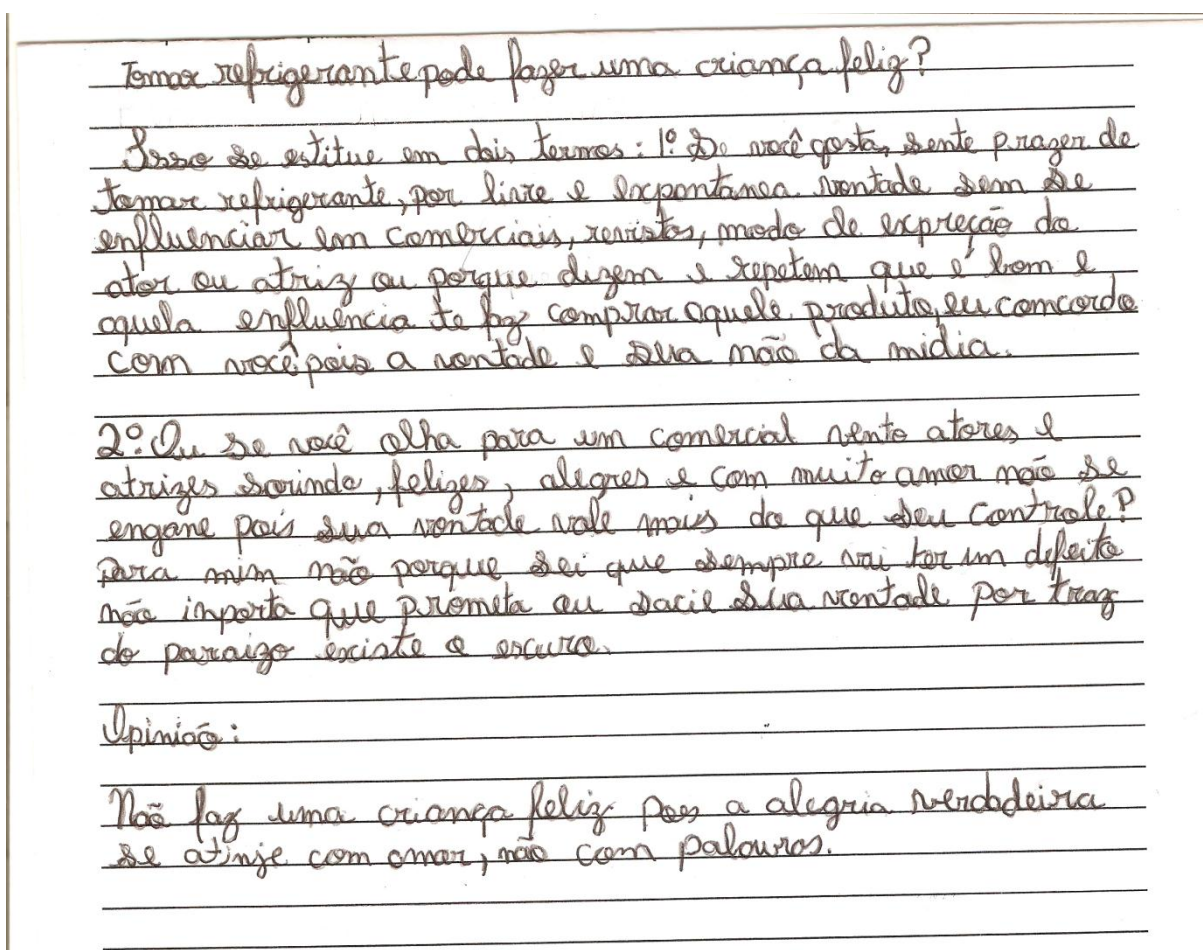 Tomar refrigerante pode fazer uma criança feliz?
Isso se estitue em dois termos: 1º Se você gosta, sente prazer de
tomar refrigerante, por livre e expontanea vontade sem se
enfluenciar em comerciais, revistas, modo de expreção do
ator ou atriz ou porque dizem e repetem que é bom e
aquela enfluência te faz comprar aquele produto, eu concordo
com você pois a vontade e sua mão da midia.
2º Ou se você olha para um comercial vento atores e
atrizes sorindo, felizes, alegres e com muito amor não se
engane pois sua vontade vale mais do que seu controle?
para mim não porque sei que sempre vai ter um defeito
não importa que prometa ou sacie sua vontade por traz
do paraizo existe o escuro.
Opinião:
Não faz uma criança feliz pois a alegria verdadeira
se atinje com amor, não com palavras.